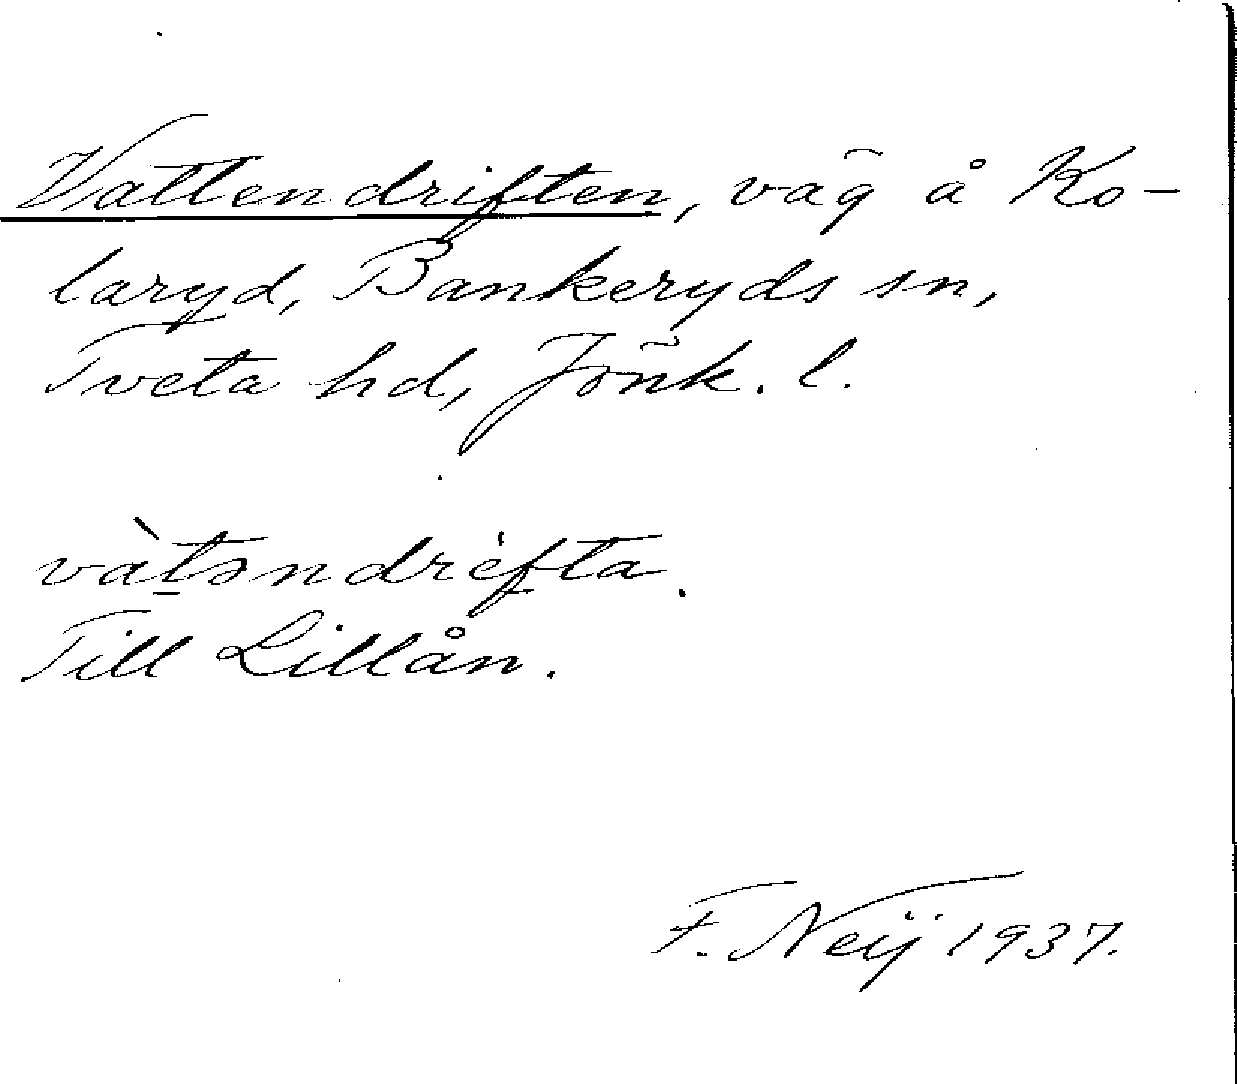 Vattendriften, väg å Ko-
laryd, Bankeryds sn,
Tveta hd, Jönk. l.
vàt̲əndrèfta.
Till Lillån.
F. Neij 1937.